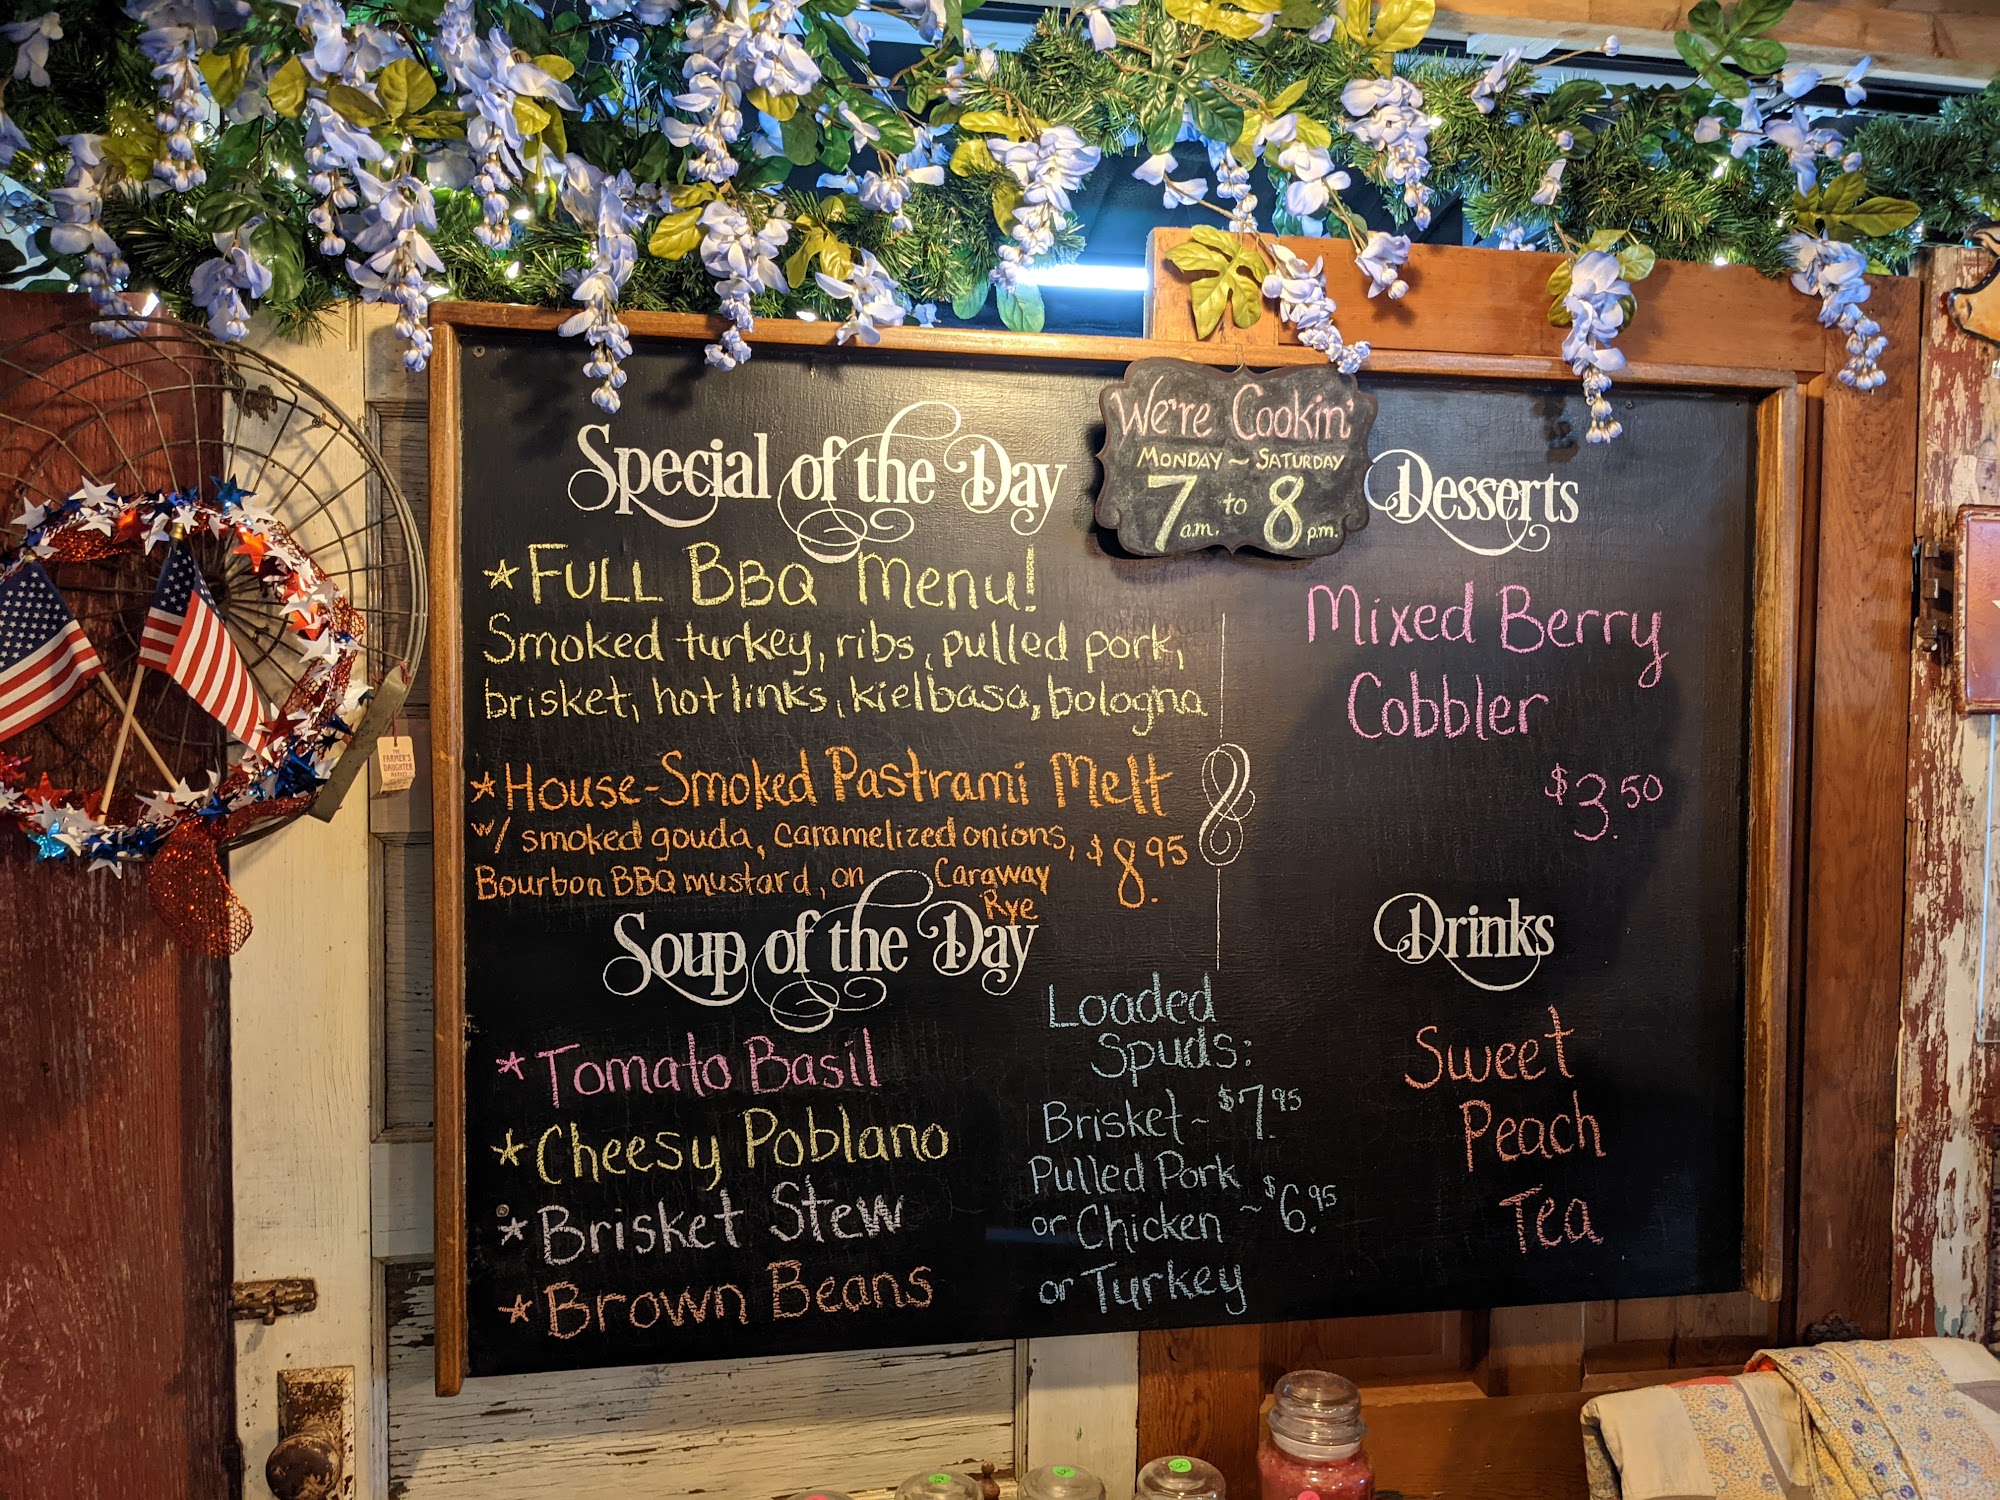 We're Cookin'
MONDAY ~ SATURDAY
7 a.m. to 8 p.m.
Special of the Day
*FULL BBQ Menu!
Smoked turkey, ribs, pulled pork,
brisket, hot links, kielbasa, bologna
*House-Smoked Pastrami Melt
w/ smoked gouda, caramelized onions,
Bourbon BBQ mustard, on Caraway
Rye
$8.95
Soup of the Day
*Tomato Basil
*Cheesy Poblano
*Brisket Stew
*Brown Beans
Loaded
Spuds:
Brisket- $7.95
Pulled Pork
or Chicken ~ $6.95
or Turkey
Desserts
Mixed Berry
Cobbler
$3.50
Drinks
Sweet
Peach
Tea
THE
FARMER'S
DAUGHTER
MARKET